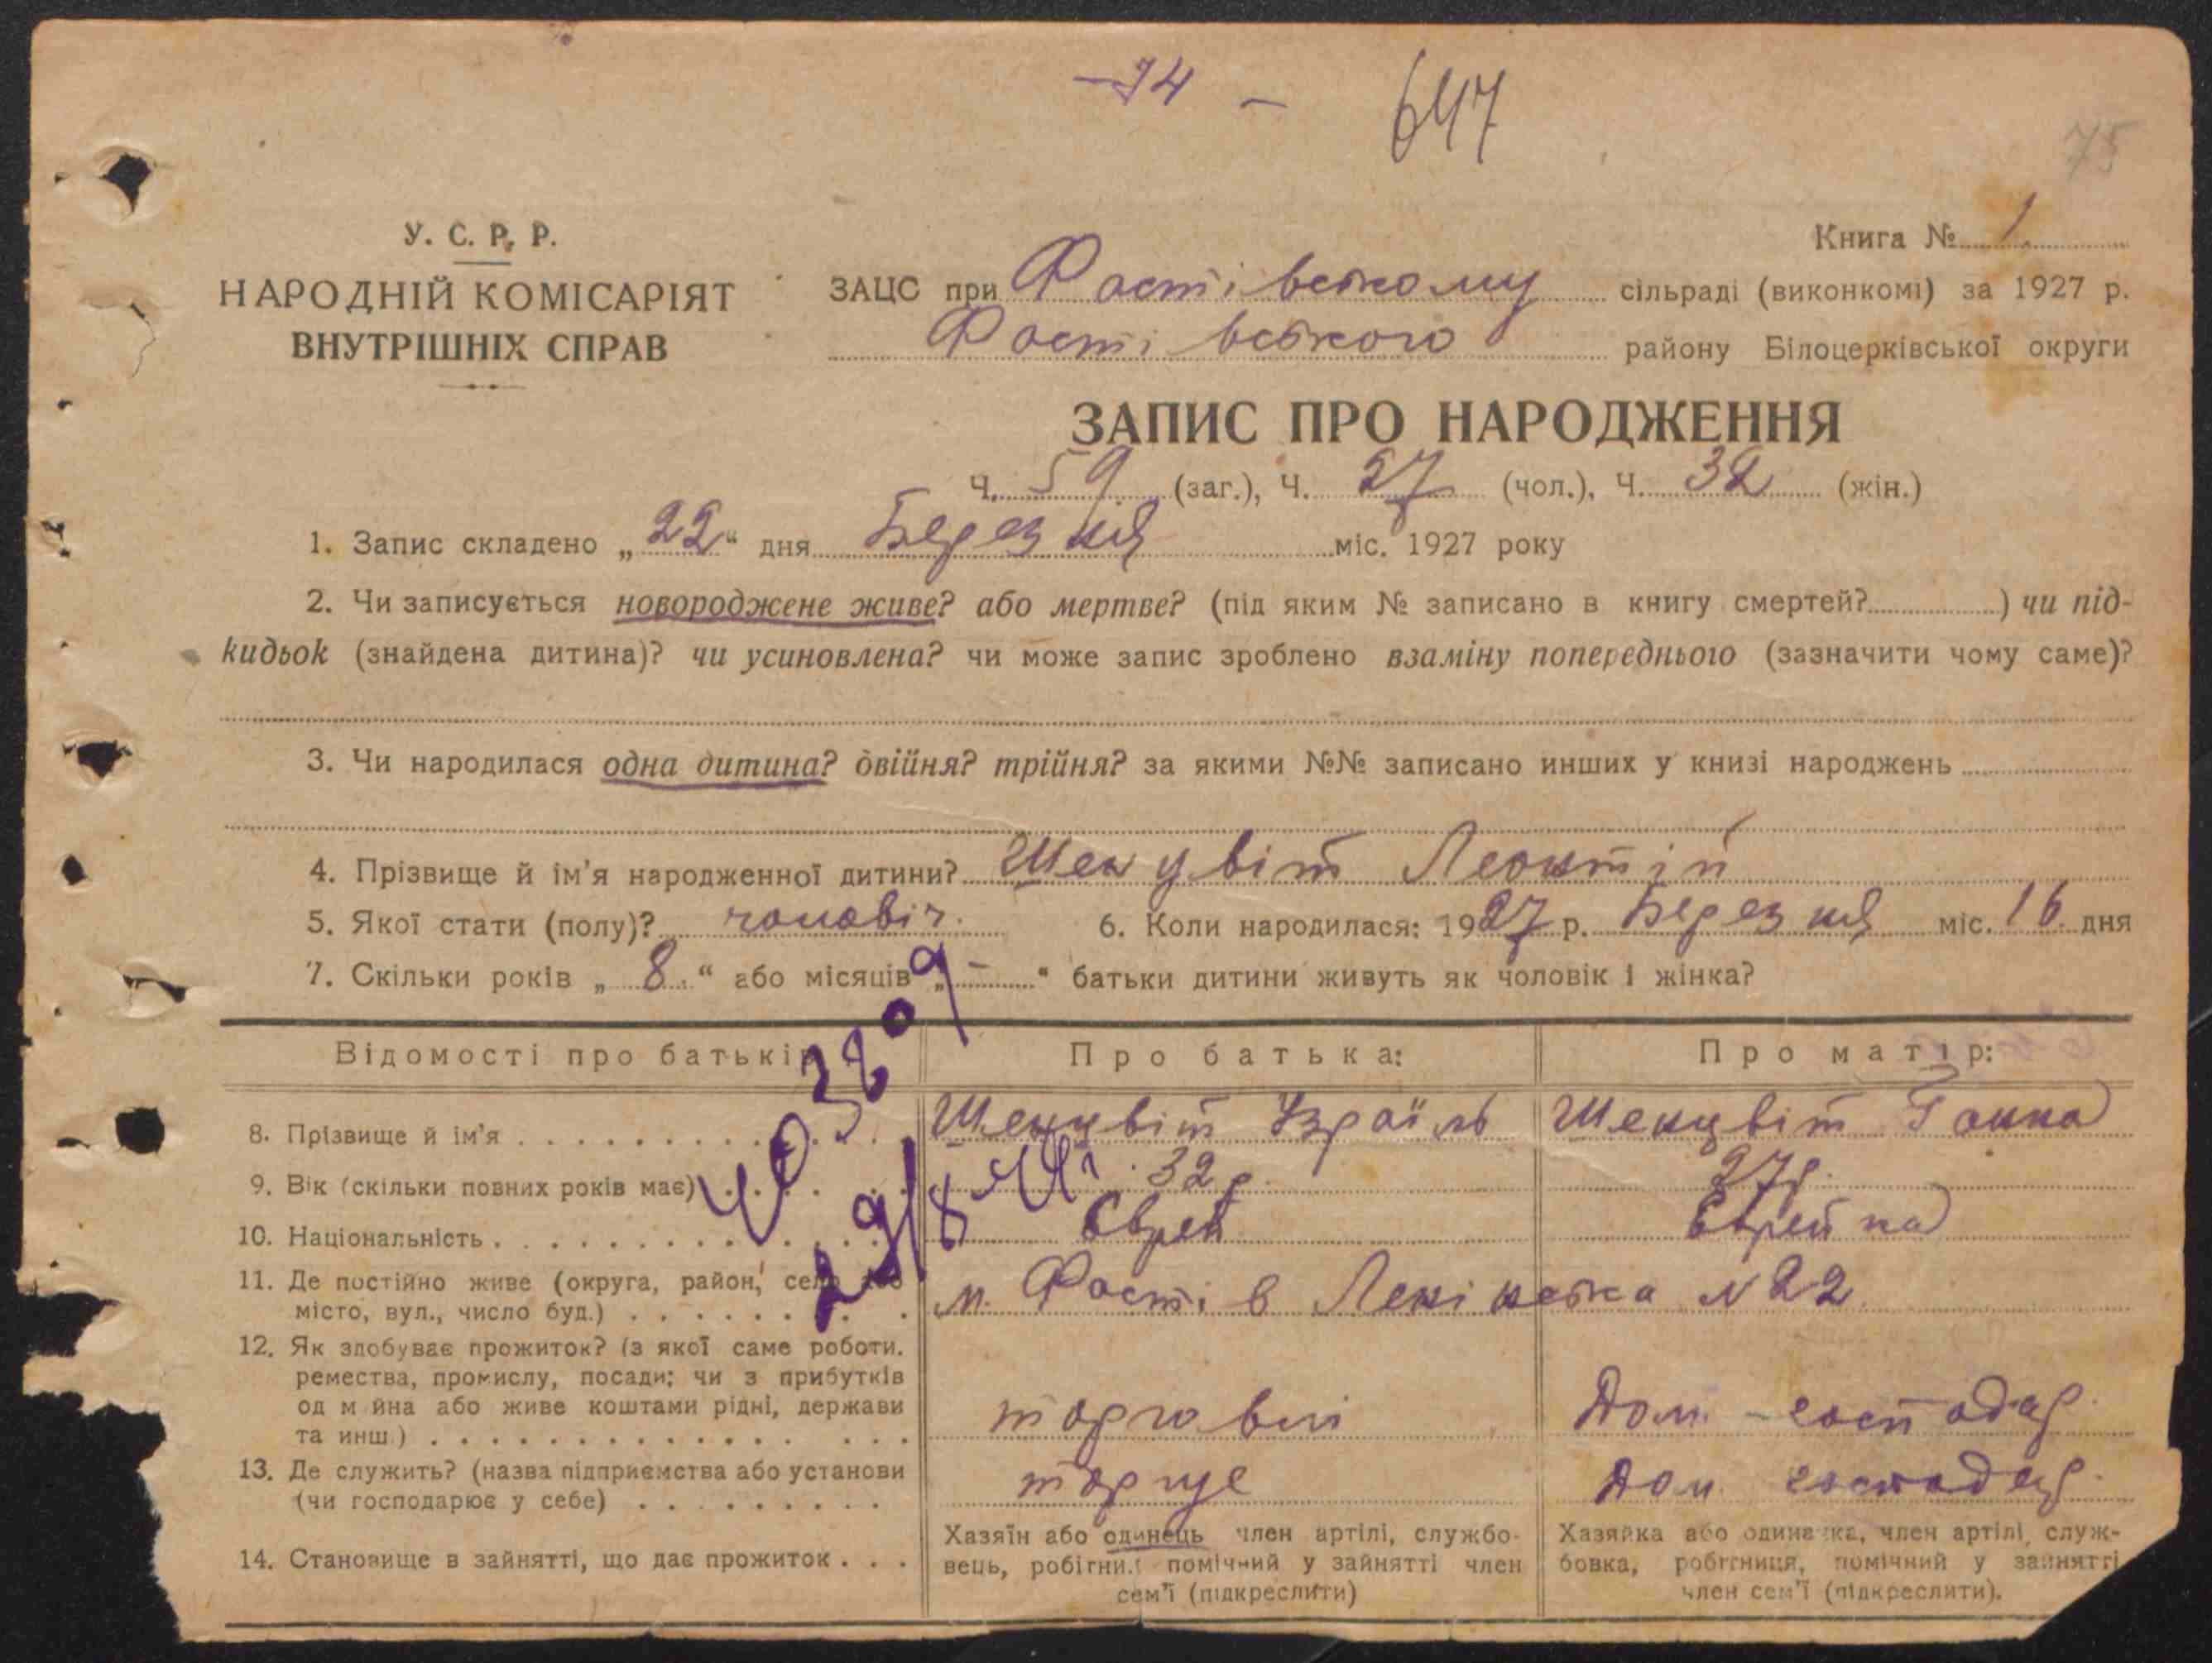 -74-
647
75
У. С. Р. Р.
НАРОДНІЙ КОМІСАРІЯТ
ВНУТРІШНІХ СПРАВ
Книга № 1
ЗАЦС при Фастівському сільраді (виконкомі) за 1927 р.
Фастівського району Білоцерківської округи
ЗАПИС ПРО НАРОДЖЕННЯ
Ч. 59 (заг.), Ч. 27 (чол.), Ч. 32 (жін.)
1. Запис складено „22“ дня Березня міс. 1927 року
2. Чи записується новороджене живе? або мертве? (під яким № записано в книгу смертей? ) чи під-
кидьок (знайдена дитина)? чи усиновлена? чи може запис зроблено взаміну попереднього (зазначити чому саме)?
3. Чи народилася одна дитина? двійня? трійня? за якими №№ записано инших у книзі народжень
4. Прізвище й ім'я народженної дитини? Шенцвіт Леонтій
5. Якої стати (полу)? чоловіч. 6. Коли народилася: 1927 р. Березня міс. 16 дня
7. Скільки років „ 8. “ або місяців „ - “ батьки дитини живуть як чоловік і жінка?
Відомості про батьків Про батька: Про матір:
8. Прізвище й ім'я Шенцвіт Ізраїль Шенцвіт Ганна
9. Вік (скільки повних років має) 32 р. 27 р.
10. Національність Єврей Єврейка
11. Де постійно живе (округа, район, село або
місто, вул., число буд.) м. Фастів Ленінська № 22
12. Як здобуває прожиток? (з якої саме роботи.
ремества, промислу, посади; чи з прибутків
од м йна або живе коштами рідні, держави
та инш.) торговлі Дом-господар.
13. Де служить? (назва підприємства або установи
(чи господарює у себе) торгує Дом господар.
14. Становище в зайнятті, що дає прожиток
Хазяїн або одинець член артілі, службо-
вець, робітник помічний у зайнятті член
сем'ї (підкреслити)
Хазяйка або одиначка, член артілі, служ-
бовка, робітниця, помічний у зайнятті
член сем'ї (підкреслити).